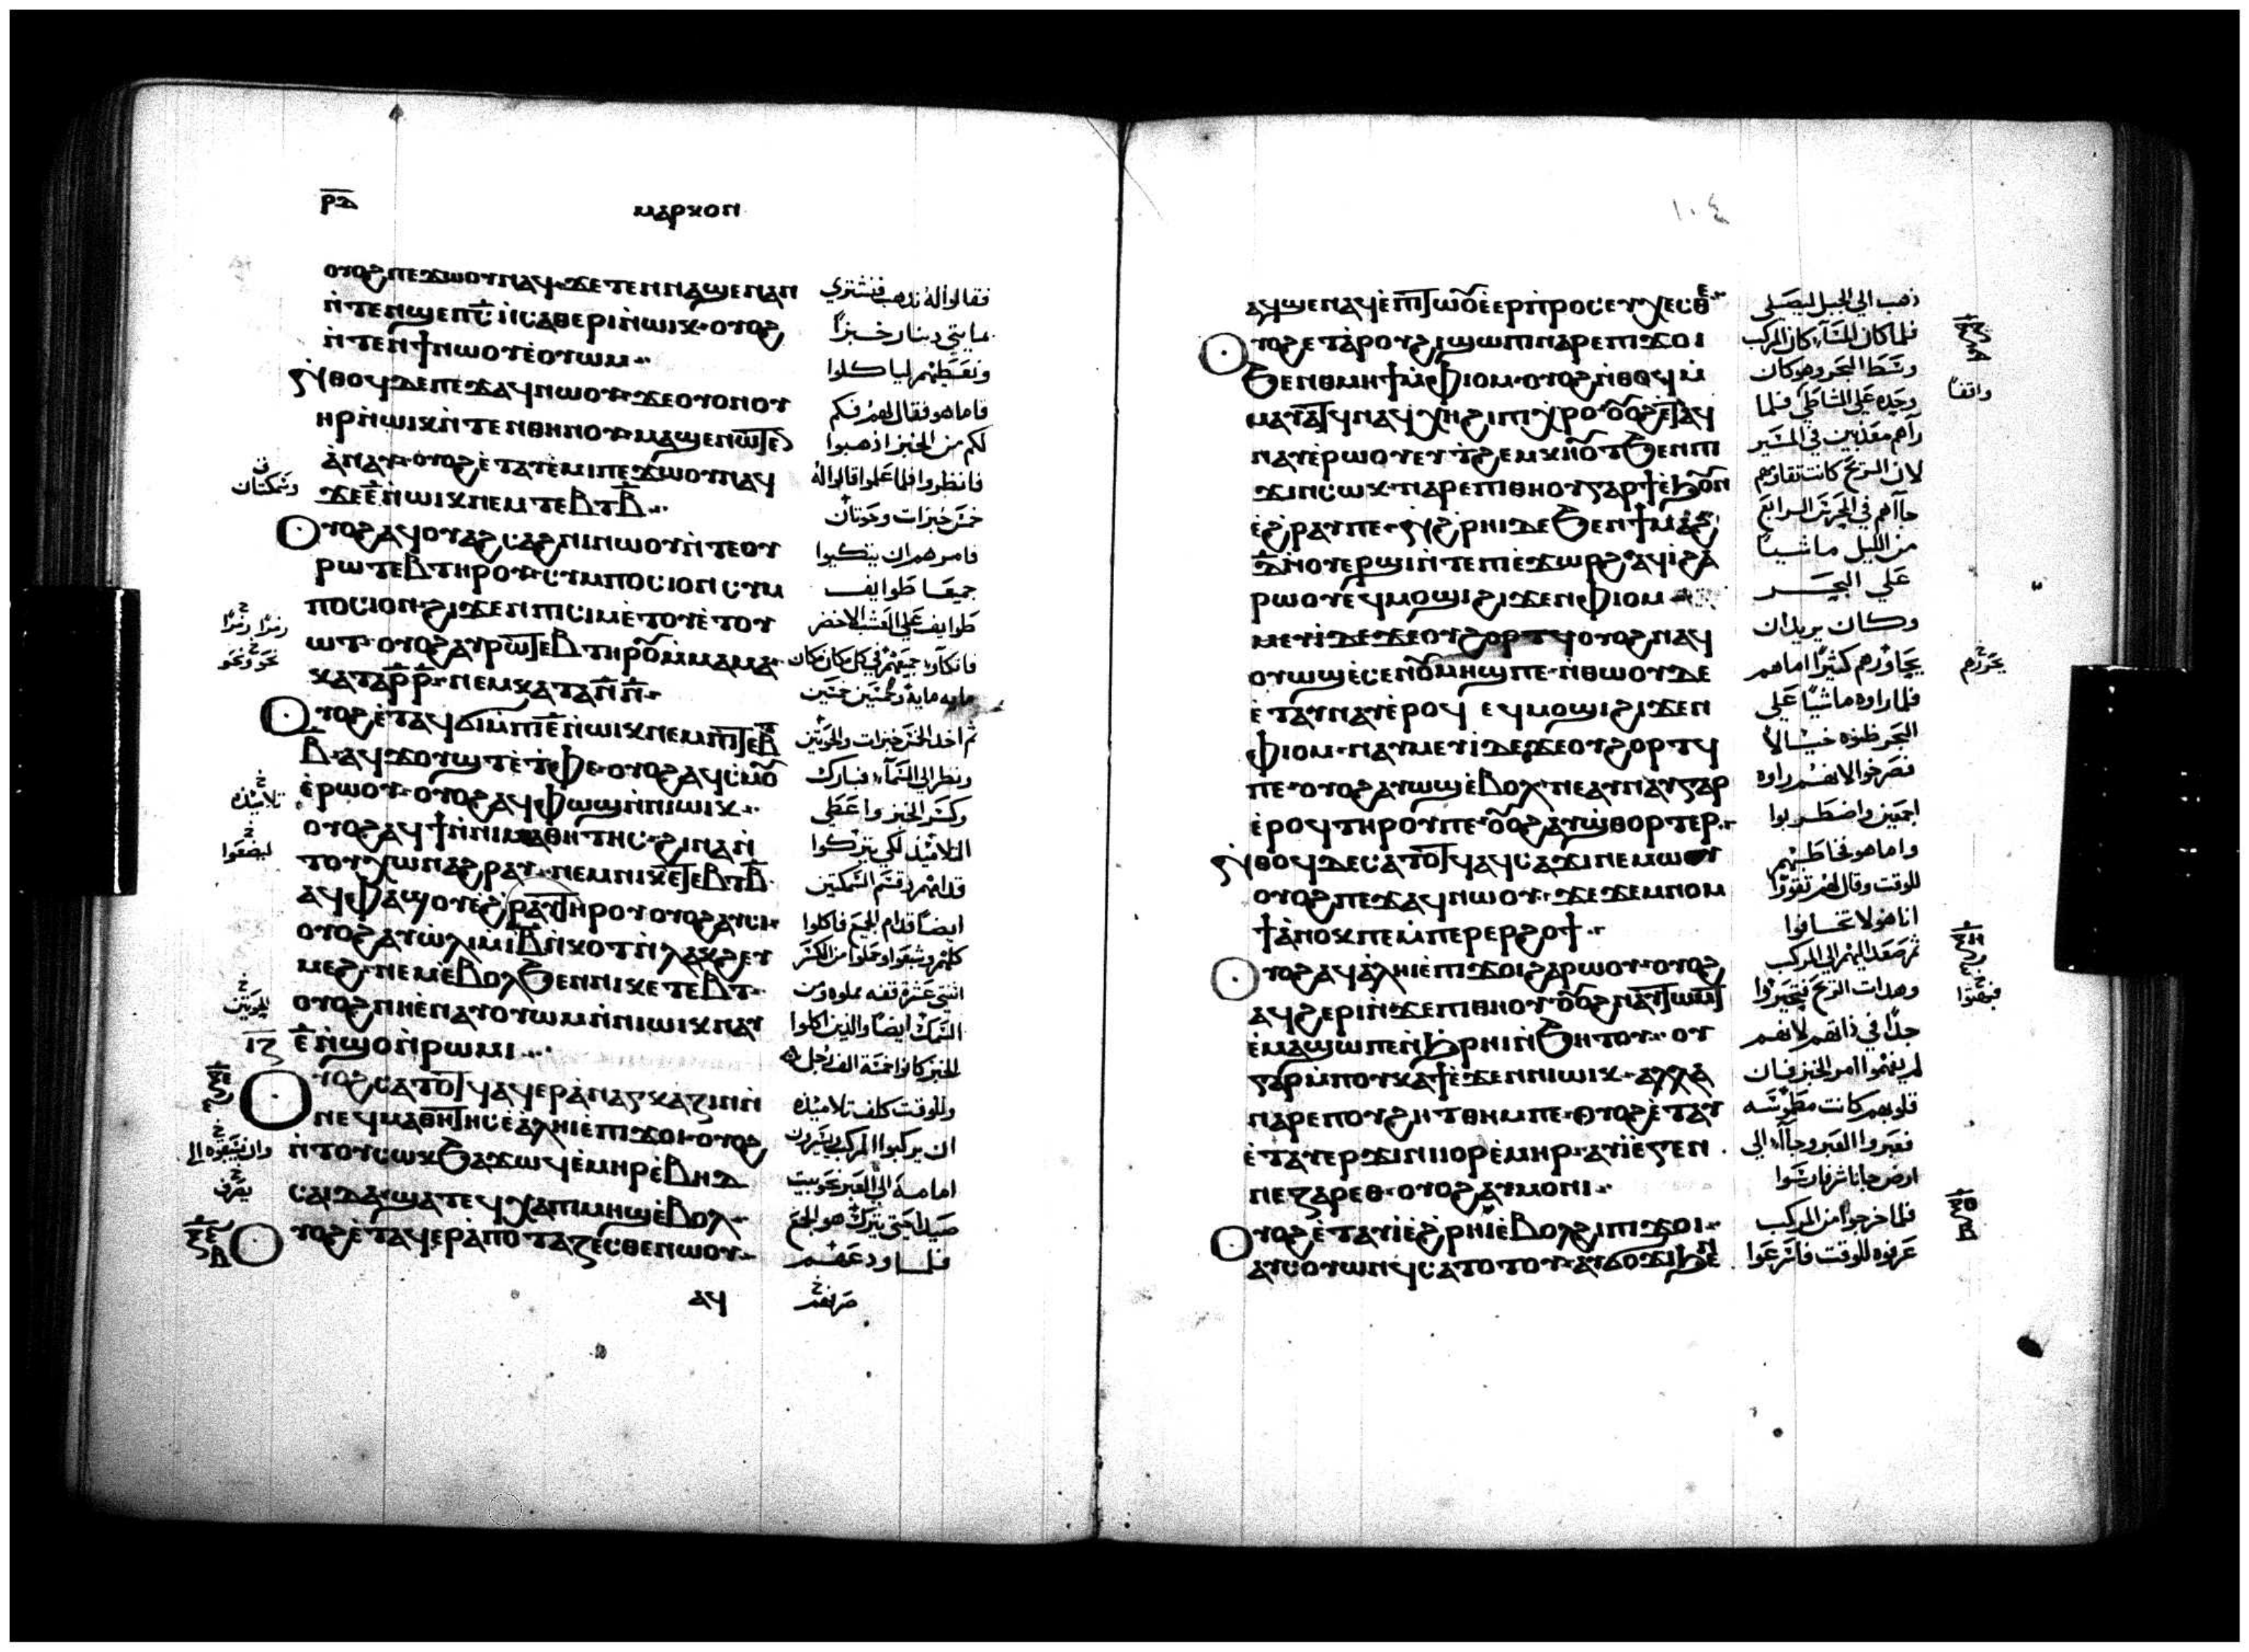 ⲣⲇ
ⲙⲁⲣⲕⲟⲛ
ⲟⲩⲟϩ ⲡⲉϫⲱⲟⲩ ⲛⲁϥ ϫⲉ ⲧⲉⲛⲛⲁϣⲉ ⲛⲁⲛ
ⲛ̀ⲧⲉⲛϣⲉⲡ ⲥ̅ ⲛ̀ⲥⲁⲑⲉⲣⲓ ⲛ̀ⲱⲓⲕ ⲟⲩⲟϩ
ⲛ̀ⲧⲉⲛϯ ⲛⲱⲟⲩ ⲉ̀ⲟⲩⲱⲙ
ⲛ̀ⲑⲟϥ ⲇⲉ ⲡⲉϫⲁϥ ⲛⲱⲟⲩ ϫⲉ ⲟⲩⲟⲛ ⲟⲩ
ⲏⲣ ⲛ̀ⲱⲓⲕ ⲛ̀ⲧⲉⲛ ⲑⲏⲛⲟⲩ ⲙⲁϣⲉⲛⲱⲧⲉⲛ
ⲁ̀ⲛⲁⲩ ⲟⲩⲟϩ ⲉ̀ⲧⲁⲩⲉ̀ⲙⲓ ⲡⲉϫⲱⲟⲩ ⲛⲁϥ
ϫⲉ ⲉ̅ ⲛ̀ⲱⲓⲕ ⲛⲉⲙ ⲧⲉⲃⲧ ⲃ̅
ⲟⲩⲟϩ ⲁϥⲟⲩⲁϩⲥⲁϩⲛⲓ ⲛⲱⲟⲩ ⲛ̀ⲧⲉⲟⲩ
ⲣⲱⲧⲉⲃ ⲧⲏⲣⲟⲩ ⲥⲩⲙⲡⲟⲥⲓⲟⲛ ⲥⲩⲙ
ⲡⲟⲥⲓⲟⲛ ϩⲓϫⲉⲛ ⲡⲓⲥⲓⲙ ⲉ̀ⲧⲟⲩⲉ̀ⲧⲟⲩ
ⲱⲧ ⲟⲩⲟϩ ⲁⲩⲣⲱⲧⲉⲃ ⲧⲏⲣⲟⲩ ⲙ̀ⲙⲁ ⲙⲁ
ⲕⲁⲧⲁ ⲣ̅ ⲣ̅ ⲛⲉⲙ ⲕⲁⲧⲁ ⲛ̅ ⲛ̅
ⲟⲩⲟϩ ⲉ̀ⲧⲁϥϭⲓ ⲙ̀ⲡⲓ ⲉ̅ ⲛ̀ⲱⲓⲕ ⲛⲉⲙ ⲡⲓⲧⲉⲃⲧ
ⲃ̅ ⲁϥϫⲟⲩϣⲧ ⲉ̀ⲧ̀ⲫⲉ ⲟⲩⲟϩ ⲁϥⲥⲙⲟⲩ
ⲉ̀ⲣⲱⲟⲩ ⲟⲩⲟϩ ⲁϥⲫⲱϣ ⲛ̀ⲛⲓⲱⲓⲕ
ⲟⲩⲟϩ ⲁϥϯ ⲛ̀ⲛⲓⲙⲁⲑⲏⲧⲏⲥ ϩⲓⲛⲁ ⲛ̀
ⲧⲟⲩⲭⲱ ⲛⲁϩⲣⲁⲩ ⲛⲉⲙ ⲛⲓⲕⲉⲧⲉⲃⲧ ⲃ̅
ⲁϥⲫⲁϣⲟⲩ ⲉ̀ϩⲣⲁⲩ ⲧⲏⲣⲟⲩ ⲟⲩⲟϩ ⲁⲩⲥⲓ
ⲟⲩⲟϩ ⲁⲩⲱ̀ⲗⲓ ⲙ̀ⲓⲃ̅ ⲛ̀ⲕⲟⲧ ⲛ̀ⲗⲁⲕϩ ⲉⲩ
ⲙⲉϩ ⲛⲉⲙ ⲉ̀ⲃⲟⲗ ϧⲉⲛ ⲛⲓⲕⲉⲧⲉⲃⲧ
ⲟⲩⲟϩ ⲛⲏ ⲉ̀ⲛⲁⲩⲟⲩⲱⲙ ⲛ̀ⲛⲓⲱⲓⲕ ⲛⲁⲩ
ⲉ̅ ⲛ̀ϣⲟ ⲛ̀ⲣⲱⲙⲓ
ⲟⲩⲟϩ ⲥⲁⲧⲟⲧϥ ⲁϥⲉⲣⲁ̀ⲛⲁⲅⲕⲁⲍⲓⲛ ⲛ̀
ⲛⲉϥⲙⲁⲑⲏⲧⲏⲥ ⲉ̀ⲁ̀ⲗⲏⲓ ⲉ̀ⲡⲓϫⲟⲓ ⲟⲩⲟϩ
ⲛ̀ⲧⲟⲩⲥⲱⲕ ϧⲁϫⲱϥ ⲉ̀ⲙⲏⲣ ⲉ̀ⲃⲏⲇ
ⲥⲁⲓⲇⲁ ϣⲁⲧⲉϥⲭⲁ ⲡⲓⲙⲏϣ ⲉ̀ⲃⲟⲗ
ⲟⲩⲟϩ ⲉ̀ⲧⲁϥⲉⲣⲁ̀ⲡⲟⲧⲁⲍⲉⲥⲑⲉ ⲛⲱⲟⲩ
ⲁϥ
فقالوا له نذهب فنشتري
بمايتي دينار خبزاً
ونعطيهم لياكلوا
فاما هو فقال لهم فكم
لكم من الخبز اذهبوا
فانظروا فلما علموا قالوا له
خمس خبزات وحوتان
فامرهم ان يتكيوا
جميعا طوايف
طوايف على العشب الاخضر
فاتكاوا جميعهم في كل مكان مكان
مايه مايه وخمسين خمسين
ثم اخد الخمس خبزات والحوتين
ونظر الى السماء فبارك
وكسر الخبز واعطى
التلاميذ لكي يتركوا
قدامهم وقسم السمكتين
ايضاً قدام الجميع فاكلوا
كلهم وشبعوا وحملوا من الكسر
اثنتي عشرة قفه مملوه ومن
السمك ايضاً والذين اكلوا
الخبز كانوا خمسة الف رجل
وللوقت كلف تلاميذه
ان يركبوا المركب ويسيرون
امامه الى العبر نحو بيت
صيدا حتى يترك هو الجمع
فلما ودعهم
١٠٤
ⲁϥϣⲉ ⲛⲁϥ ⲉ̀ⲡⲓⲧⲱⲟⲩ ⲉ̀ⲉⲣⲡ̀ⲣⲟⲥⲉⲩⲭⲉⲥⲑⲉ
ⲟⲩⲟϩ ⲉ̀ⲧⲁ ⲣⲟⲩϩⲓ ϣⲱⲡⲓ ⲛⲁⲣⲉ ⲡⲓϫⲟⲓ
ϧⲉⲛ ⲑⲙⲏϯ ⲙ̀ⲫⲓⲟⲙ ⲟⲩⲟϩ ⲛ̀ⲑⲟϥ ⲙ̀
ⲙⲁⲩⲁⲧϥ ⲛⲁϥⲭⲏ ϩⲓ ⲡⲓⲭⲣⲟ ⲟⲩⲟϩ ⲉ̀ⲧⲁϥ
ⲛⲁⲩ ⲉ̀ⲣⲱⲟⲩ ⲉⲩⲧ̀ϩⲉⲙⲕⲏⲟⲩⲧ ϧⲉⲛ ⲡⲓ
ϫⲓⲛⲥⲱⲕ ⲛⲁⲣⲉ ⲡⲓⲑⲏⲟⲩ ⲅⲁⲣ ϯ ⲉ̀ϧⲟⲩⲛ
ⲉ̀ϩⲣⲁⲩ ⲡⲉ ⲛ̀ϩⲣⲏⲓ ⲇⲉ ϧⲉⲛ ϯⲙⲁϩ
ⲇ̅ ⲛ̀ⲟⲩⲉⲣϣⲓ ⲛ̀ⲧⲉ ⲡⲓⲉ̀ϫⲱⲣϩ ⲁϥⲓ̀ ϩⲁ
ⲣⲱⲟⲩ ⲉϥⲙⲟϣⲓ ϩⲓϫⲉⲛ ⲫⲓⲟⲙ
ⲟⲩⲱϣ ⲉ̀ⲥⲉⲛⲟⲩ ⲙ̀ⲙⲏϣ ⲡⲉ ⲛ̀ⲑⲱⲟⲩ ⲇⲉ
ⲉ̀ⲧⲁⲩⲛⲁⲩ ⲉ̀ⲣⲟϥ ⲉϥⲙⲟϣⲓ ϩⲓϫⲉⲛ
ⲫⲓⲟⲙ ⲛⲁⲩⲙⲉⲩⲓ̀ ⲇⲉ ϫⲉ ⲟⲩϩⲟⲣⲧϥ
ⲡⲉ ⲟⲩⲟϩ ⲁⲩⲱϣ ⲉ̀ⲃⲟⲗ ⲛⲉⲁⲩⲛⲁⲩ ⲅⲁⲣ
ⲉ̀ⲣⲟϥ ⲧⲏⲣⲟⲩ ⲡⲉ ⲟⲩⲟϩ ⲁⲩϣⲑⲟⲣⲧⲉⲣ
ⲛ̀ⲑⲟϥ ⲇⲉ ⲥⲁⲧⲟⲧϥ ⲁϥⲥⲁϫⲓ ⲛⲉⲙⲱⲟⲩ
ⲟⲩⲟϩ ⲡⲉϫⲁϥ ⲛⲱⲟⲩ ϫⲉ ϫⲉⲙⲛⲟⲙ
ϯ ⲁ̀ⲛⲟⲕ ⲡⲉ ⲙ̀ⲡⲉⲣⲉⲣϩⲟϯ
ⲟⲩⲟϩ ⲁϥⲁ̀ⲗⲏⲓ ⲉ̀ⲡⲓϫⲟⲓ ϩⲁⲣⲱⲟⲩ ⲟⲩⲟϩ
ⲁϥϩⲉⲣⲓ ⲛ̀ϫⲉ ⲡⲓⲑⲏⲟⲩ ⲟⲩⲟϩ ⲛⲁⲩⲧⲱⲙⲧ
ⲉ̀ⲙⲁϣⲱ ⲡⲉ ⲛ̀ϧⲣⲏⲓ ⲛ̀ϧⲏⲧⲟⲩ ⲟⲩ
ⲅⲁⲣ ⲙ̀ⲡⲟⲩⲕⲁϯ ⲉ̀ϫⲉⲛ ⲛⲓⲱⲓⲕ ⲁⲗⲗⲁ
ⲛⲁⲣⲉ ⲡⲟⲩϩⲏⲧ ⲑⲏⲙ ⲡⲉ ⲟⲩⲟϩ ⲉ̀ⲧⲁⲩ
ⲉ̀ⲧⲁⲩⲉⲣϫⲓⲛⲓⲟⲣ ⲉ̀ⲙⲏⲣ ⲁⲩⲓ̀ ⲉ̀ⲅⲉⲛ
ⲛⲉⲍⲁⲣⲉⲑ ⲟⲩⲟϩ ⲁⲩⲙⲟⲛⲓ
ⲟⲩⲟϩ ⲉ̀ⲧⲁⲩⲓ̀ ⲉ̀ϩⲣⲏⲓ ⲉ̀ⲃⲟⲗ ϩⲓ ⲡⲓϫⲟⲓ
ⲁⲩⲥⲟⲩⲱⲛϥ ⲥⲁⲧⲟⲧⲟⲩ ⲁⲩϭⲟϫⲓ ϧⲉⲛ
ذهب الى الجبل ليصلى
فلما كان المساء كان المركب
وسط البحر وهو كان
وحده على الشاطي فلما
رآهم معذبين في المسير
لان الريح كانت تقاومهم
جاآهم في الهجزيع الرابع
من الليل ماشياً
على البحر
وكان يريد ان
يجاوزهم كثيرًا اما هم
فلما راوه ماشياً على
البحر ظنوه خيالاً
فصرخوا لانهم راوه
اجمعين واضطربوا
واما هو فخاطبهم
للوقت وقال لهم تقووا
انا هو لا تخافوا
ثم صعد اليهم الى المركب
وهدات الريح فتحيروا
جداً في ذاتهم لانهم
لم يفهموا امر الخبز فان
قلوبهم كانت مطموسه
فعبروا العبر وجاآ الى
فلما خرجوا من المركب
عرفوه للوقت فاسرعوا